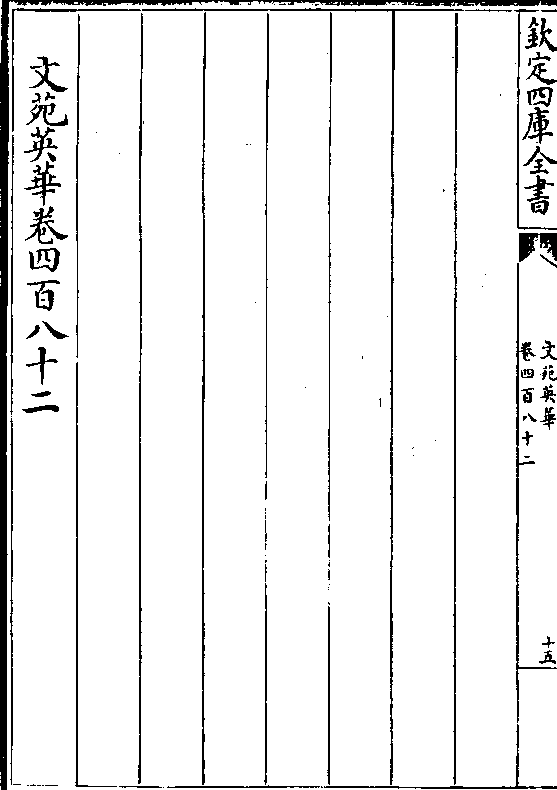 欽定四庫全書
文苑英華
卷四百八十二
十五
文苑英華卷四百八十二